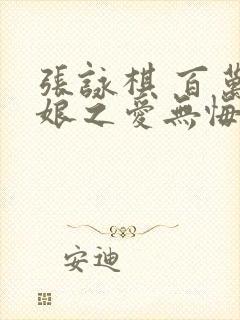 張詠棋 百萬
娘之愛無悔
安迪